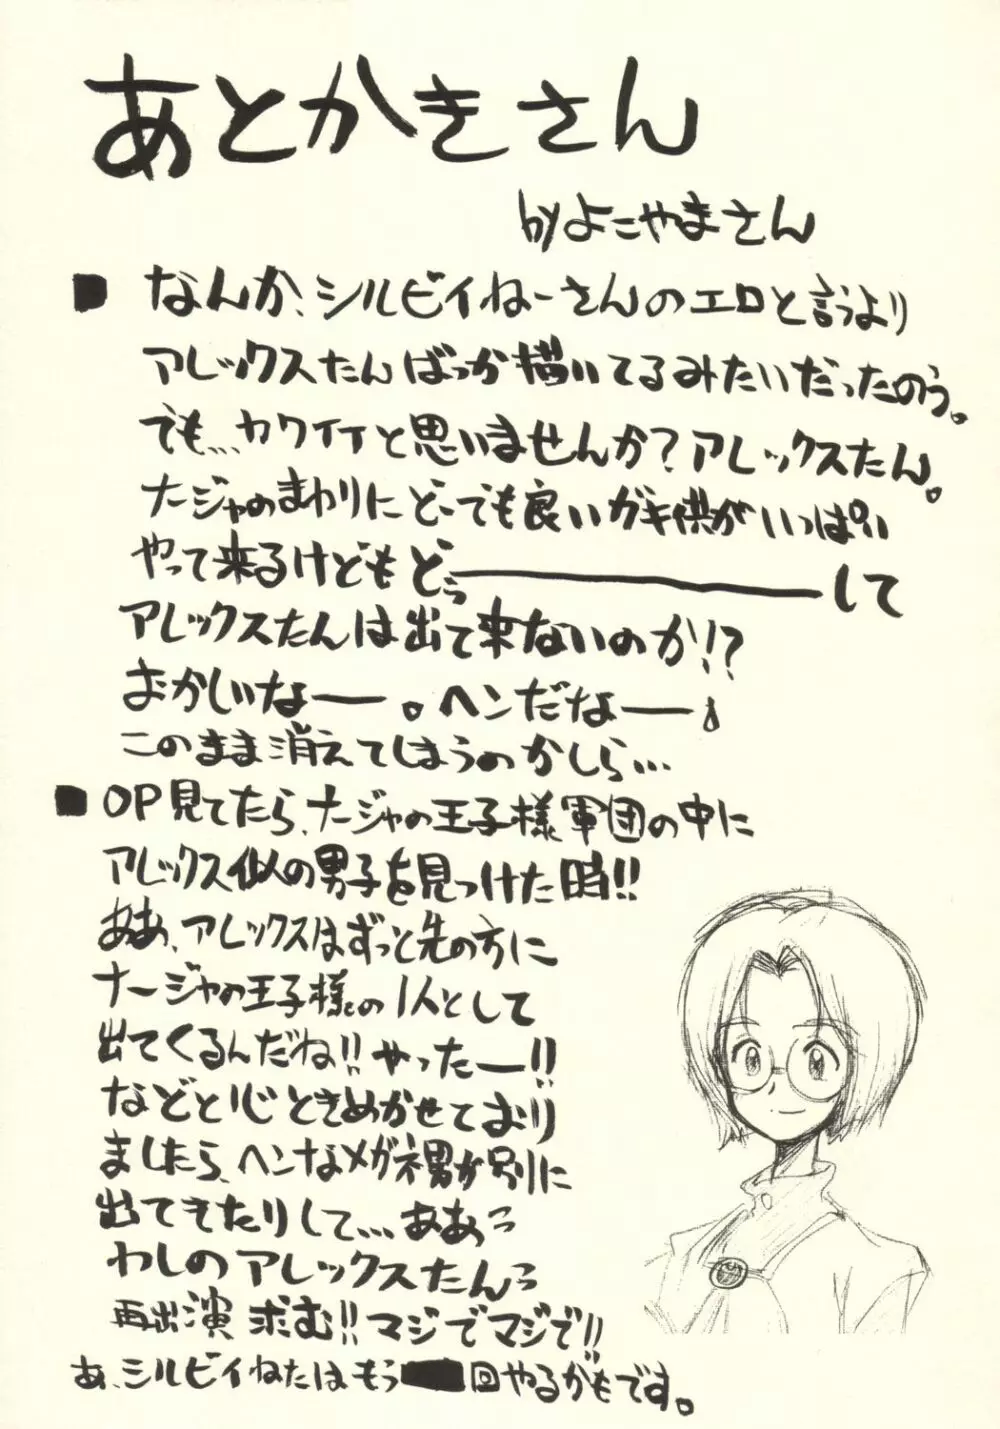 あとがきさん
byよこやまさん
■ なんか、シルビィねーさんのエロと言うより
アレックスたんばっか描いてるみたいだったのう。
でも…カワイイと思いませんか?アレックスたん。
ナージャのまわりにどーでも良いガキ供がいっぱい
やって来るけどもどぅ――――して
アレックスたんは出て来ないのか!?
おかしいなー。ヘンだなー。
このまま消えてしまうのかしら…
■ OP見てたら、ナージャの王子様軍団の中に
アレックス似の男子を見つけた時!!
ああ、アレックスはずっと先の方に
ナージャの王子様の1人として
出てくるんだね!!やったー!!
などと心ときめかせており
ましたら、ヘンなメガネ男が別に
出てきたりして…ああっ
わしのアレックスたんっ
再出演求む!!マジでマジで!!
あ、シルビィねたはもう 回やるかもです。